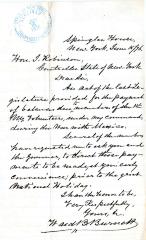 Springler House,
New York, June 9/76
Hon. L. Robinson,
Controller State of New York
An Act of the late Le-
gislature provided for the payment
of balances due to members of the 1st
N.Y. Volunteers, under my command,
during the War with Mexico.
Several of the members
have requested me to ask you and
the Governor, to direct those pay-
ments to be made at your early
convenience, prior to the great
National Holiday.
I have the honor to be,
Very Respectfully,
Yours, &c
Ward B. Burnett